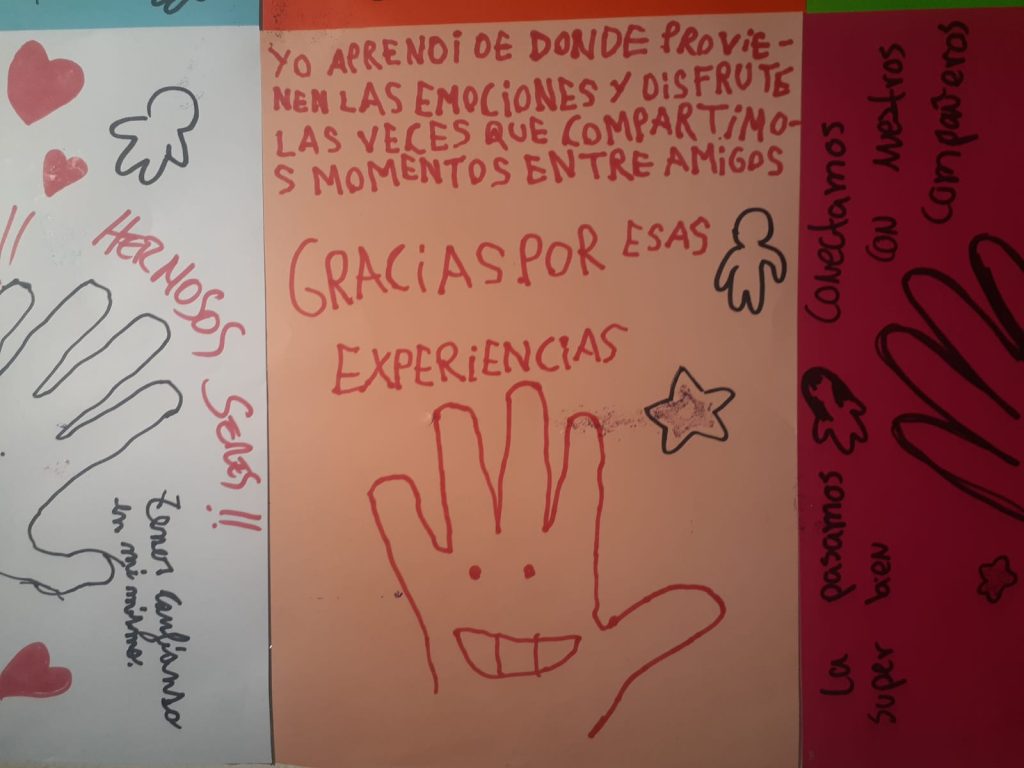 HERMOSOS SERES !!
tener confianza
en mi misma.
YO APRENDI DE DONDE PROVIE-
NEN LAS EMOCIONES Y DISFRUTE
LAS VECES QUE COMPARTIMO-
S MOMENTOS ENTRE AMIGOS
GRACIAS POR ESAS
EXPERIENCIAS
La pasamos
super bien
Conectamos
con nuestros
compañeros